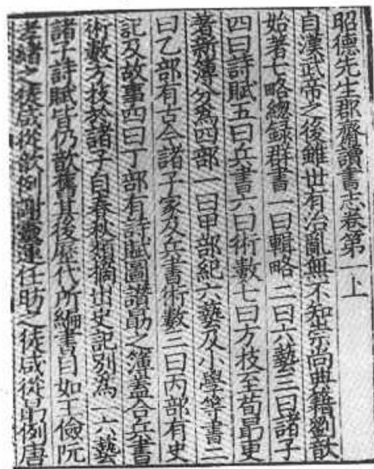 昭德先生郡齋讀書志卷第一上
自漢武帝之後雖世有治亂無不知崇尚典籍劉歆
始著七略總録群書一曰輯略二曰六藝三曰諸子
四曰詩賦五曰兵書六曰術數七曰方技至荀勗更
著新簿分爲四部一曰甲部紀六藝及小學等書二
曰乙部有古今諸子家及兵書術數三曰丙部有史
記及故事四曰丁部有詩賦圖讃勗之簿蓋合兵書
術數方技於諸子自春秋類摘出史記别為一六藝
諸子詩賦皆仍歆舊其後歷代所編書目如王儉阮
孝緒之徒咸從歆例謝靈運任昉之徒咸從勗例唐